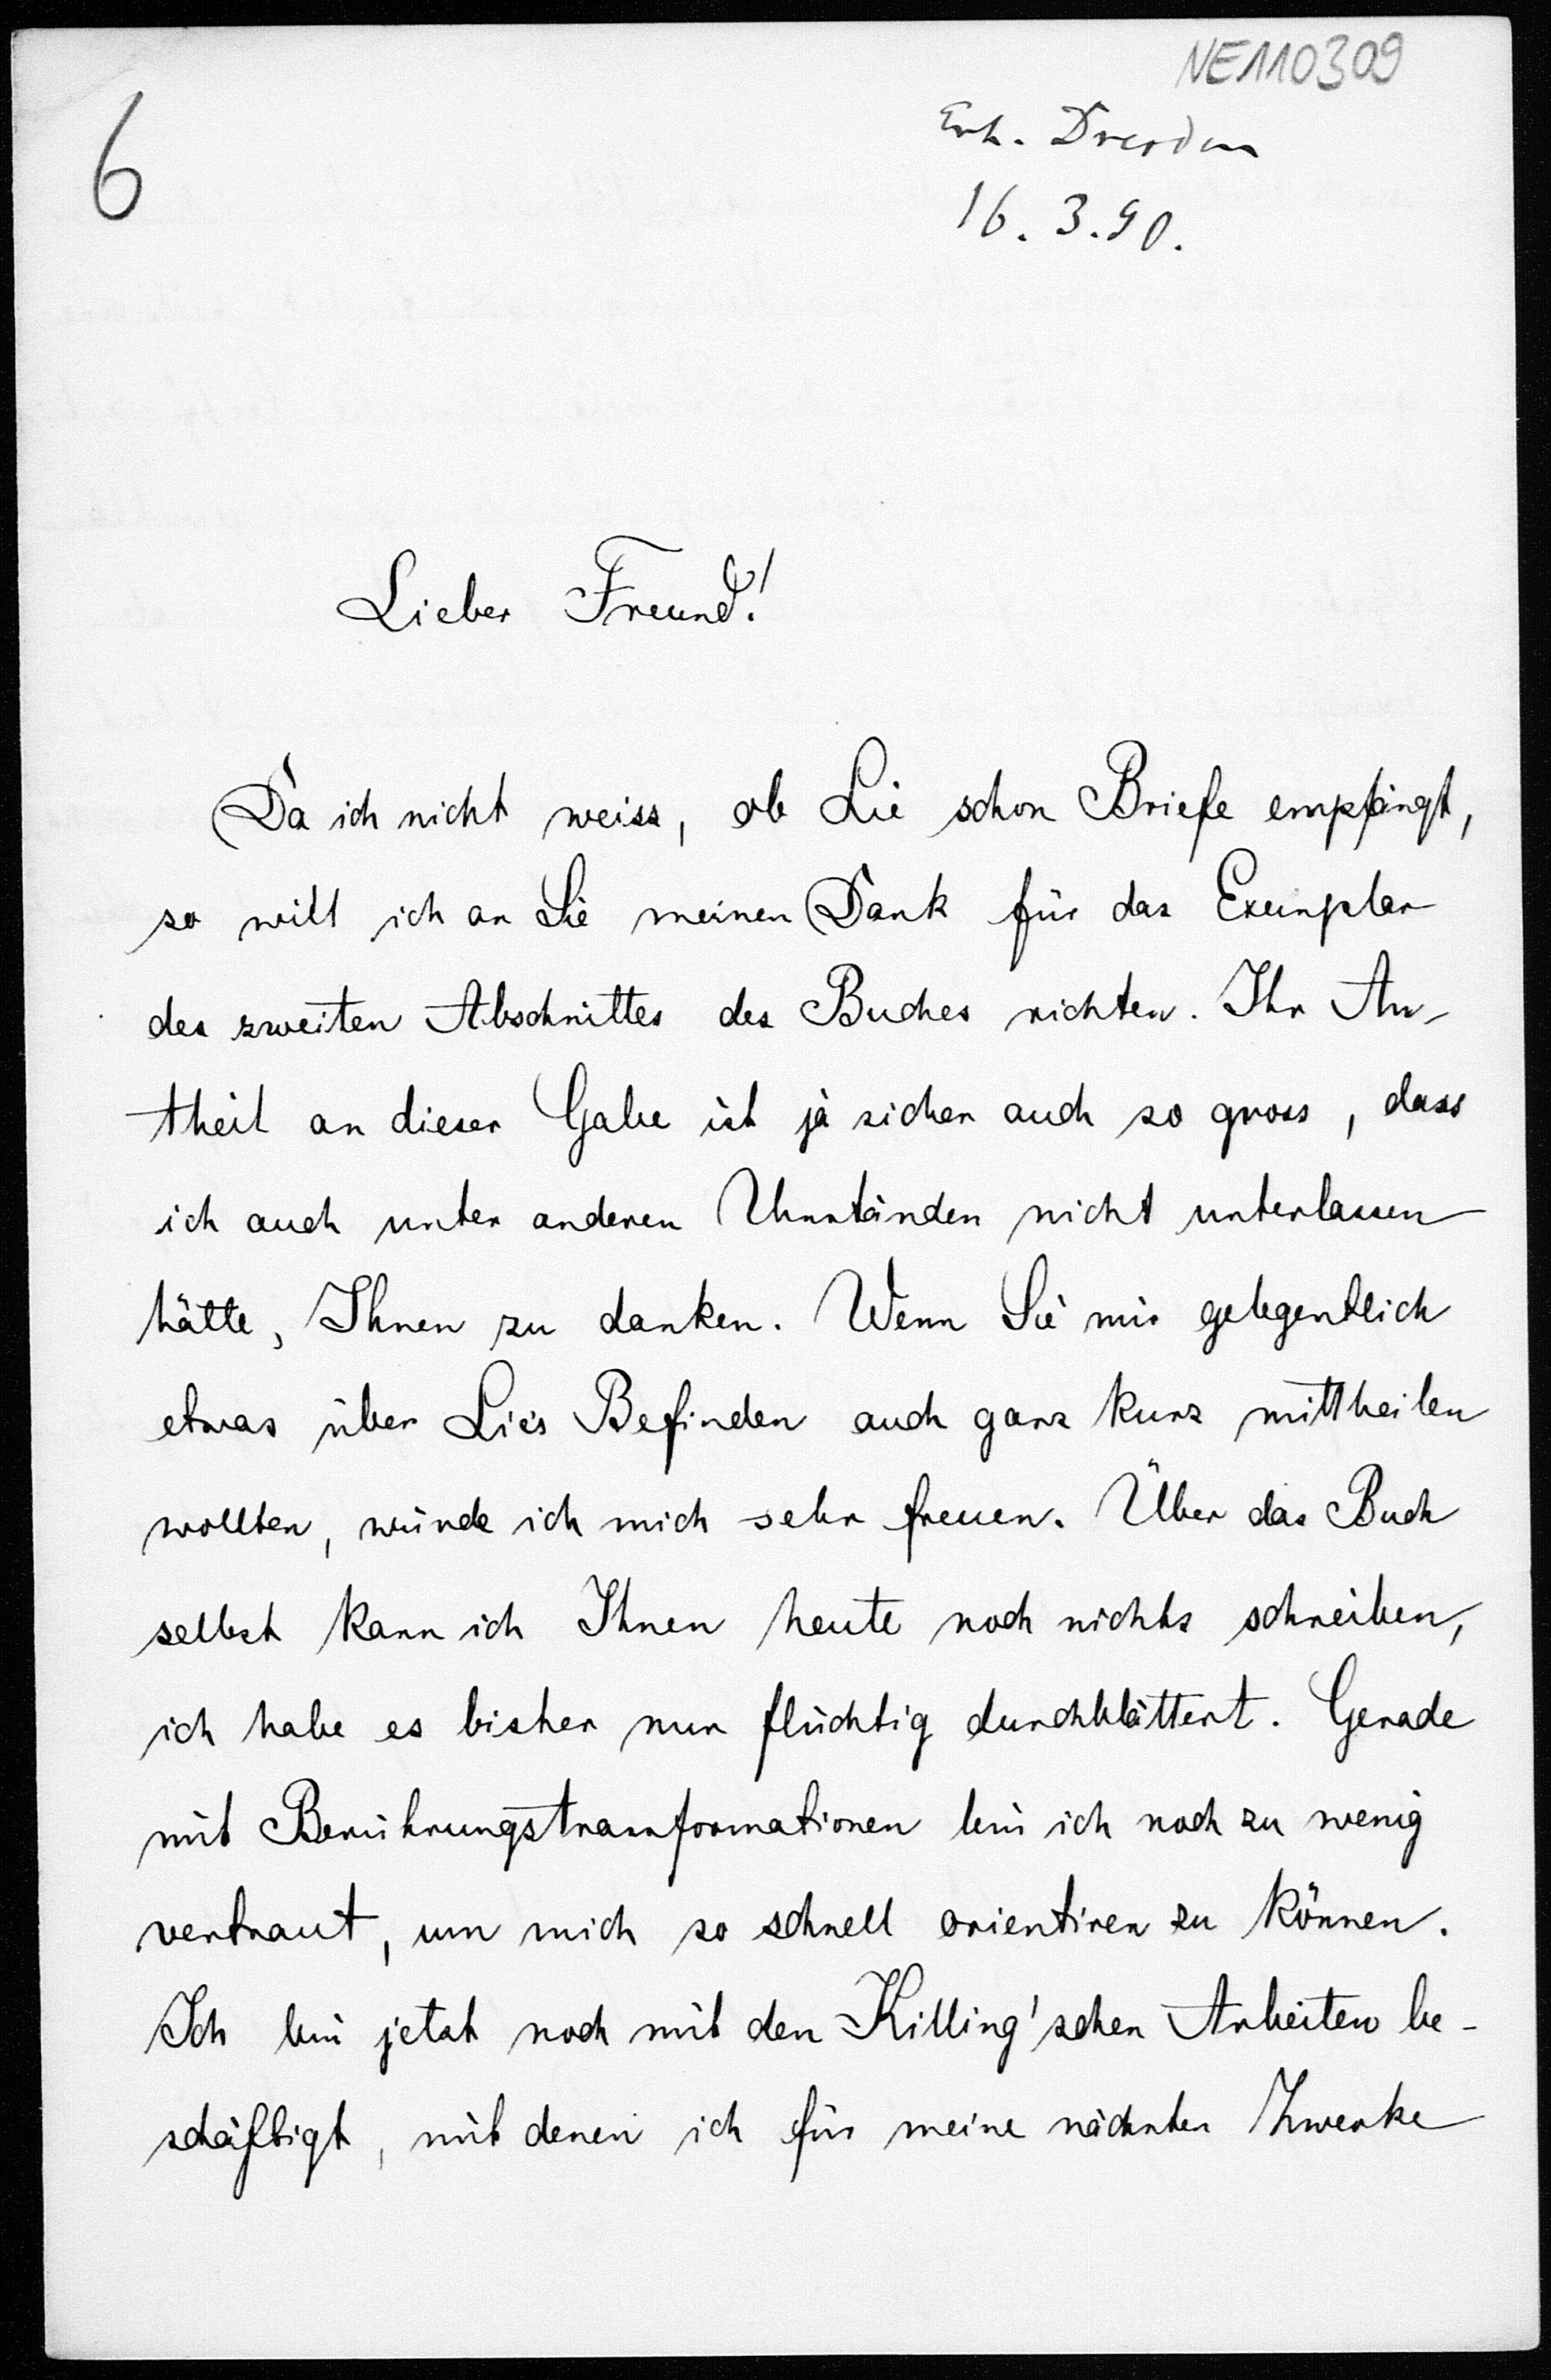 NE110309
6
Erh. Dresden
16.3.90.
Lieber Freund!
Da ich nicht weiss, ob Lie schon Briefe empfängt,
so will ich an Sie meinen Dank für das Exemplar
des zweiten Abschnittes des Buches richten. Ihr An-
theil an dieser Gabe ist ja sicher auch so gross, dass
ich auch unter anderen Umständen nicht unterlassen
hätte, Ihnen zu danken. Wenn Sie mir gelegentlich
etwas über Lie's Befinden auch ganz kurz mittheilen
wollten, würde ich mich sehr freuen. Über das Buch
selbst kann ich Ihnen heute noch nichts schreiben,
ich habe es bisher nur flüchtig durchblättert. Gerade
mit Berührungstransformationen bin ich noch zu wenig
vertraut, um mich so schnell orientiren zu können.
Ich bin jetzt noch mit den Killing'schen Arbeiten be-
schäftigt, mit denen ich für meine nächsten Zwecke